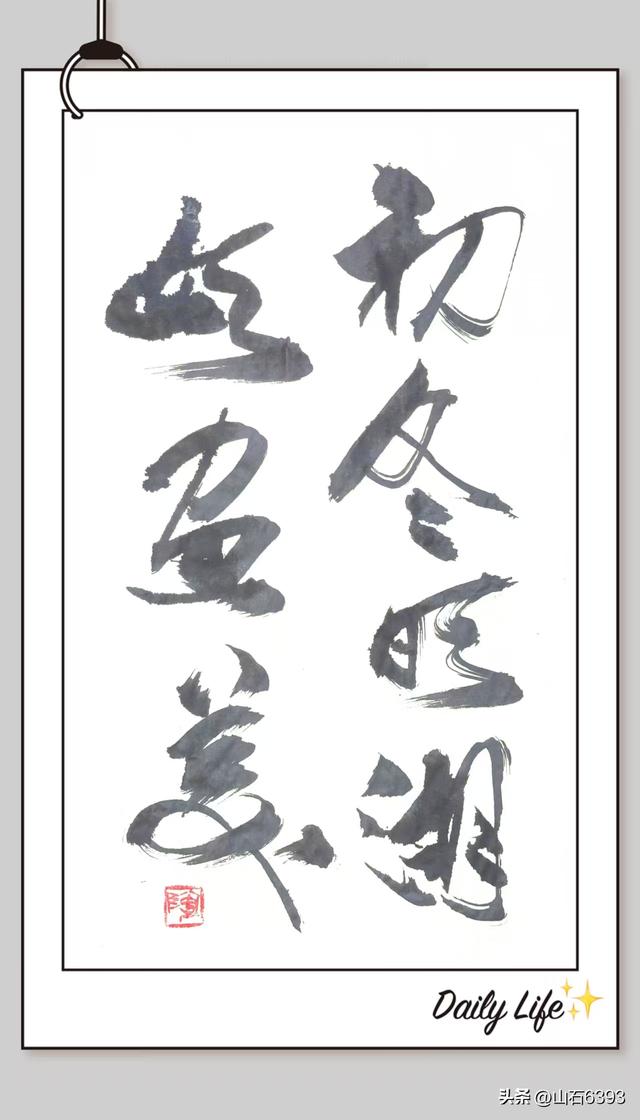 初冬湖
比画美
陶
Daily Life
头条 @山石6393